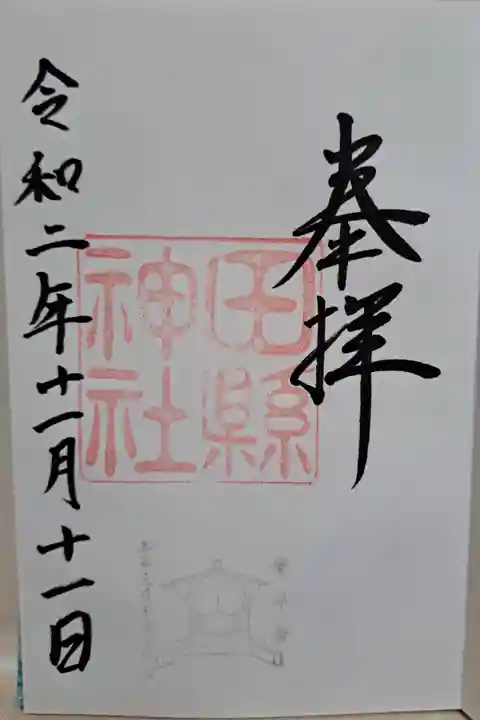 奉拝
田縣
神社
令和二年十一月十一日